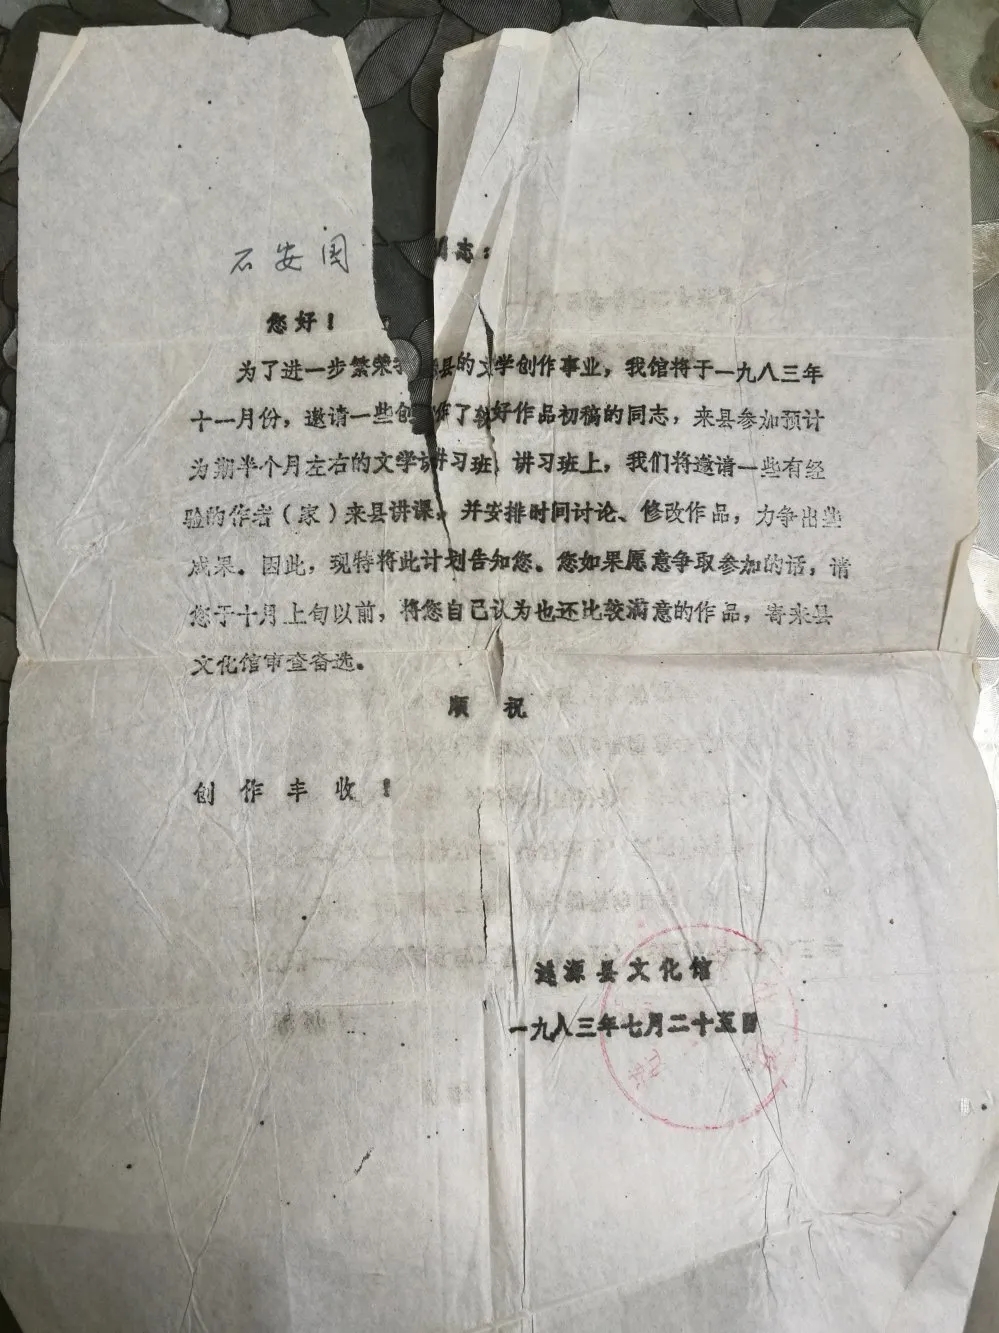 石安国 同志：
您好！
为了进一步繁荣我县的文学创作事业，我馆将于一九八三年
十一月份，邀请一些创作了较好作品初稿的同志，来县参加预计
为期半个月左右的文学讲习班。讲习班上，我们将邀请一些有经
验的作者（家）来县讲课，并安排时间讨论、修改作品，力争出些
成果。因此，现特将此计划告知您。您如果愿意争取参加的话，请
您于十月上旬以前，将您自己认为也还比较满意的作品，寄来县
文化馆审查备选。
顺祝
创作丰收！
涟源县文化馆
一九八三年七月二十五日